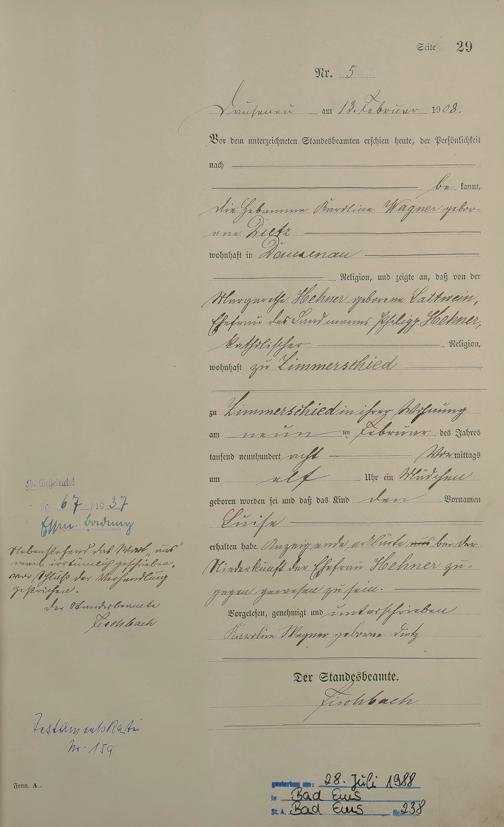 Seite 29
Nr. 5
Dausenau am 12. Februar 1908.
Vor dem unterzeichneten Standesbeamten erschien heute, der Persönlichkeit
nach
be kannt,
die Hebamme Karoline Wagner gebor-
ene Dietz
wohnhaft in Dausenau
Religion, und zeigte an, daß von der
Margarethe Hehner geborene Lattwein,
Ehefrau des Landmanns Philipp Hehner,
katholischer Religion,
wohnhaft zu Zimmerschied
zu Zimmerschied in ihrer Wohnung
am neun ten Februar des Jahres
tausend neunhundert acht Vormittags
um elf Uhr ein Mädchen
geboren worden sei und daß das Kind den Vornamen
Luise
erhalten habe. Anzeigende erklärte aus bei der
Niederkunft der Ehefrau Hehner zu-
gegen gewesen zu sein.
Vorgelesen, genehmigt und unterschrieben
Karoline Wagner geborene Dietz
Der Standesbeamte.
Fischbach
Geheiratet
67 / 1937
Nebenstehend das Wort „aus"
weil irrtümlich geschrieben,
vor Schluß der Verhandlung
gestrichen.
Der Standesbeamte
Fischbach
Testamentskartei
Nr. 159
Form. A.
gestorben am: 28. Juli 1988
in Bad Ems
St. A. Bad Ems Nr. 238